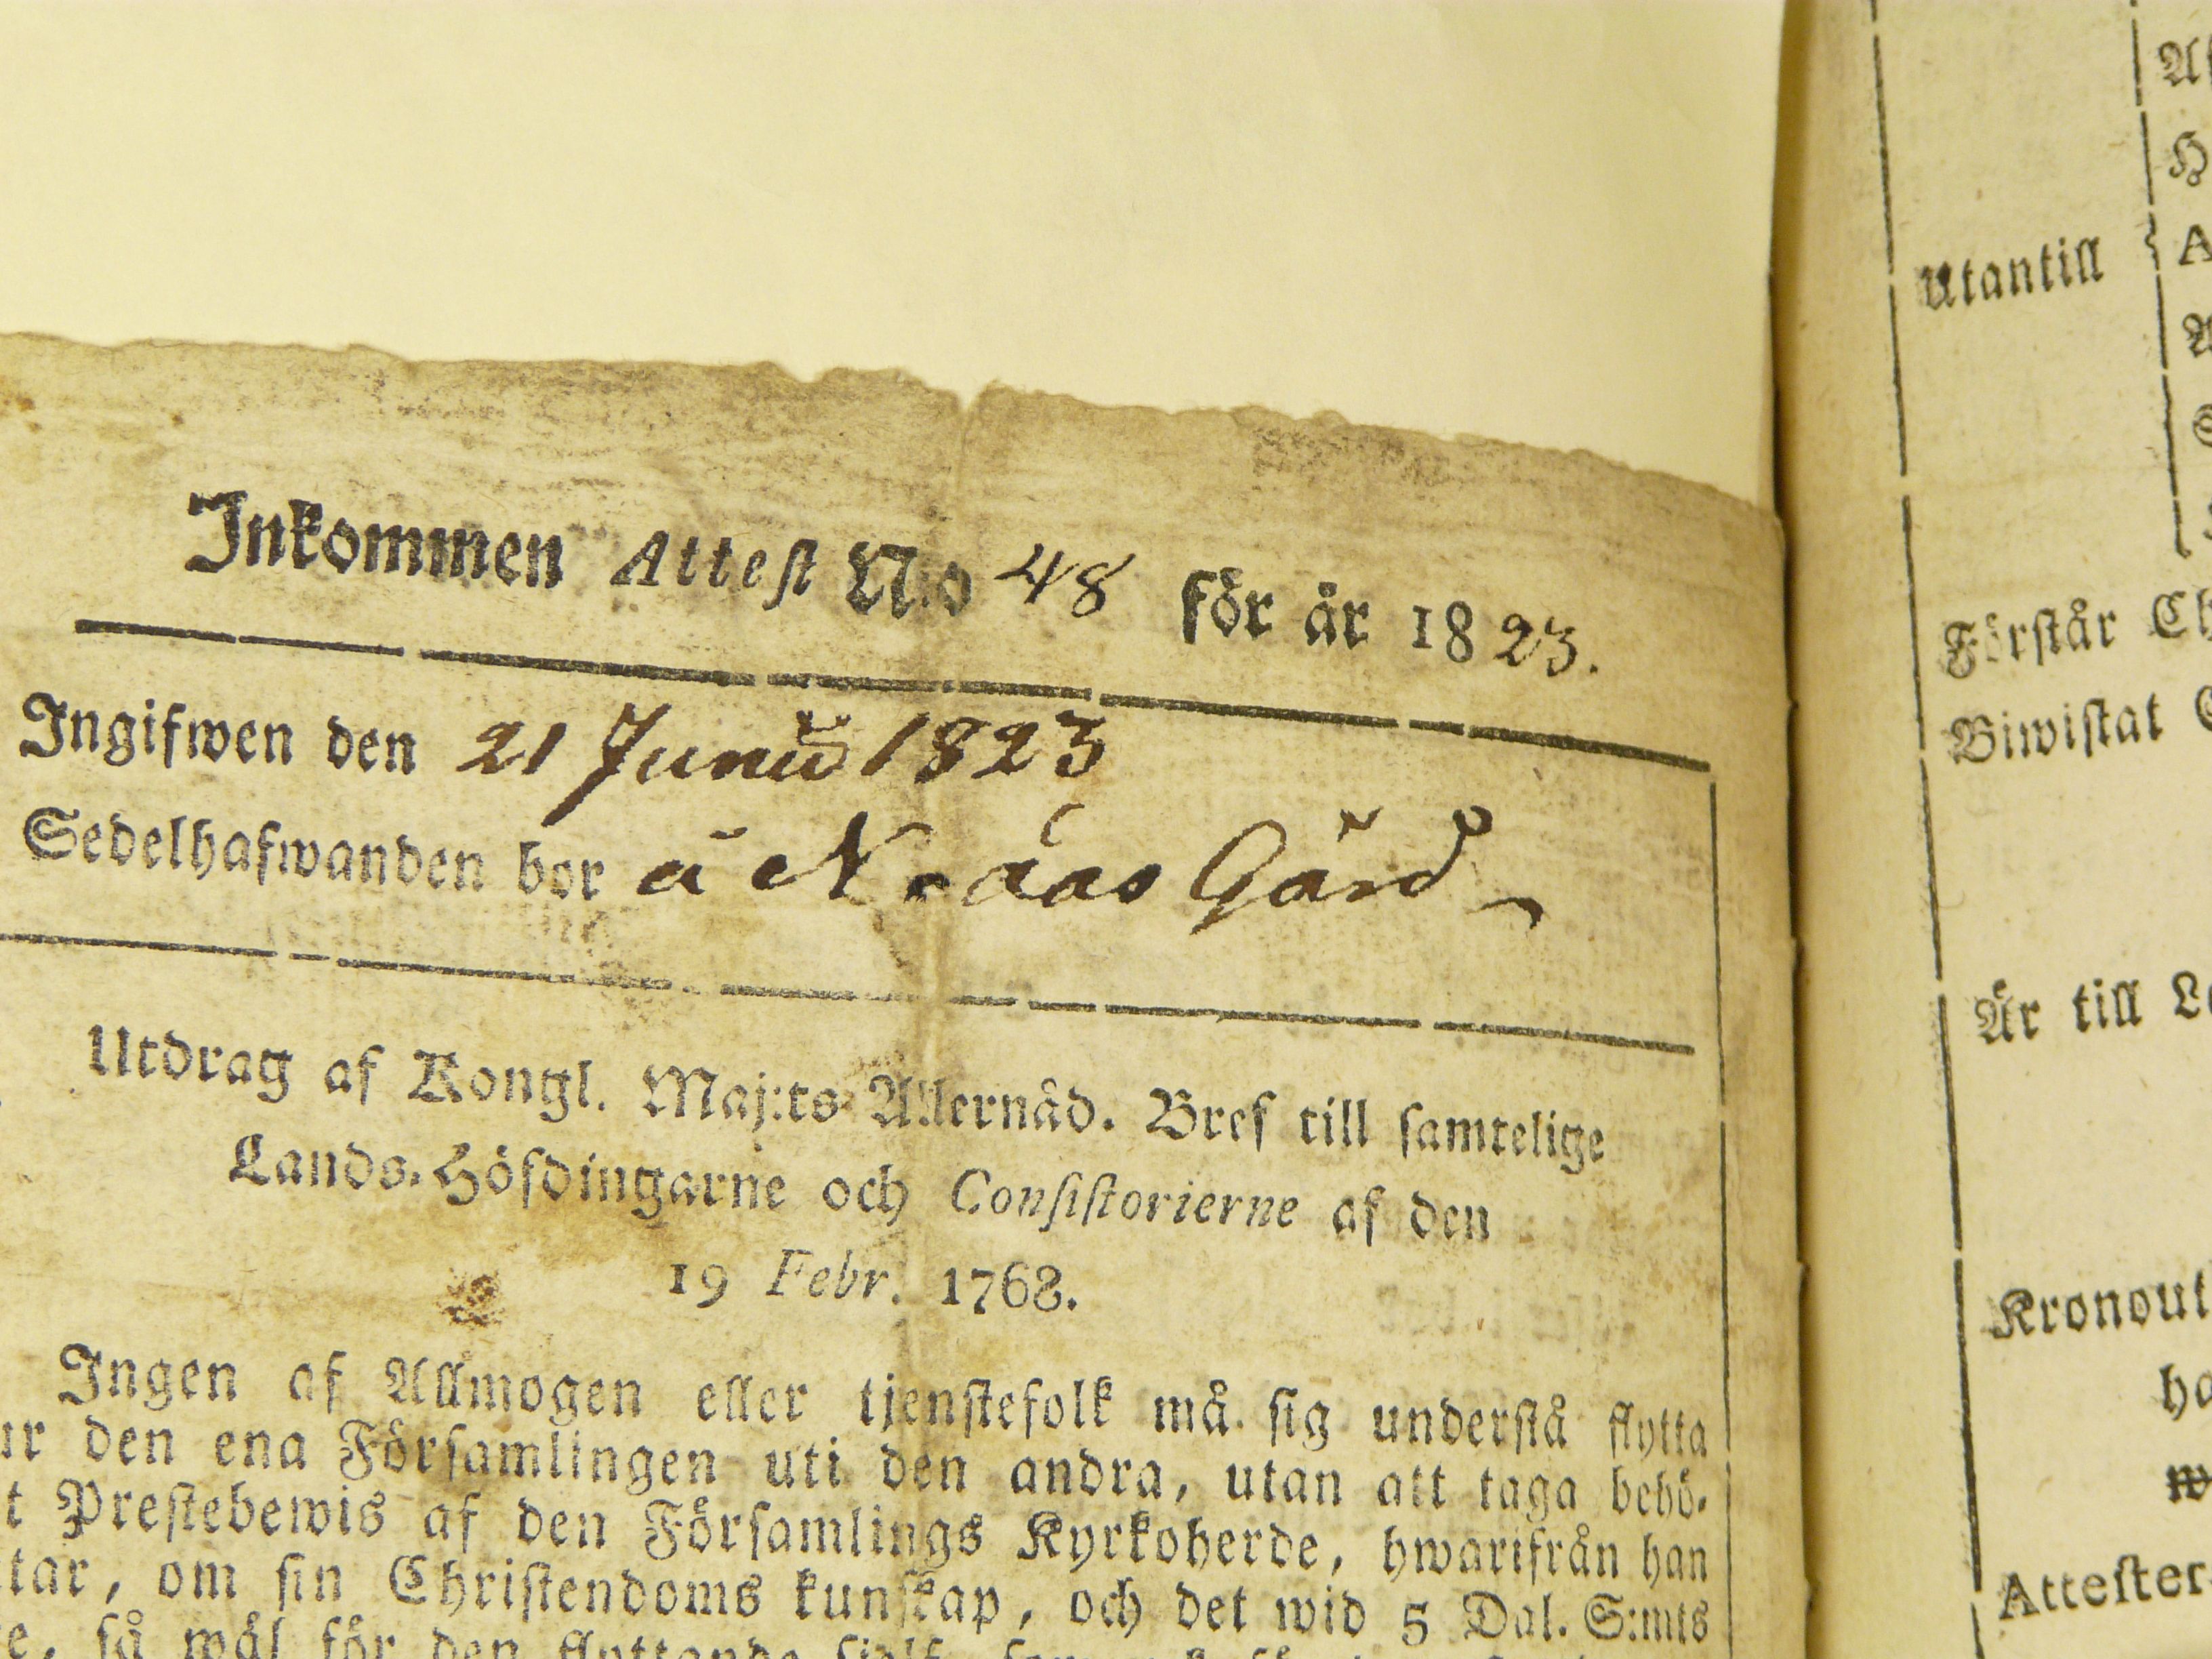 Inkommen Attest N:o 48 för år 1823.
Ingifwen den 21 Junii 1823
Sedelhafwanden bor å Näås Gård
Utdrag af Kongl. Maj:ts Allernåd. Bref till samtelige
Lands-Höfdingarne och Consistorierne af den
19 Febr. 1768.
Ingen af Allmogen eller tjenstefolk må sig understå flytta
ur den ena Församlingen uti den andra, utan att taga behö-
t Prestebewis af den Församlings Kyrkoherde, hwarifrån han
tar, om sin Christendoms kunskap, och det wid 5 Dal. S:mts
e, så wäl för den flyttande sjelf
Utantill
Förstår Ch
Biwistat
Är till
Kronout
ha
w
Attester